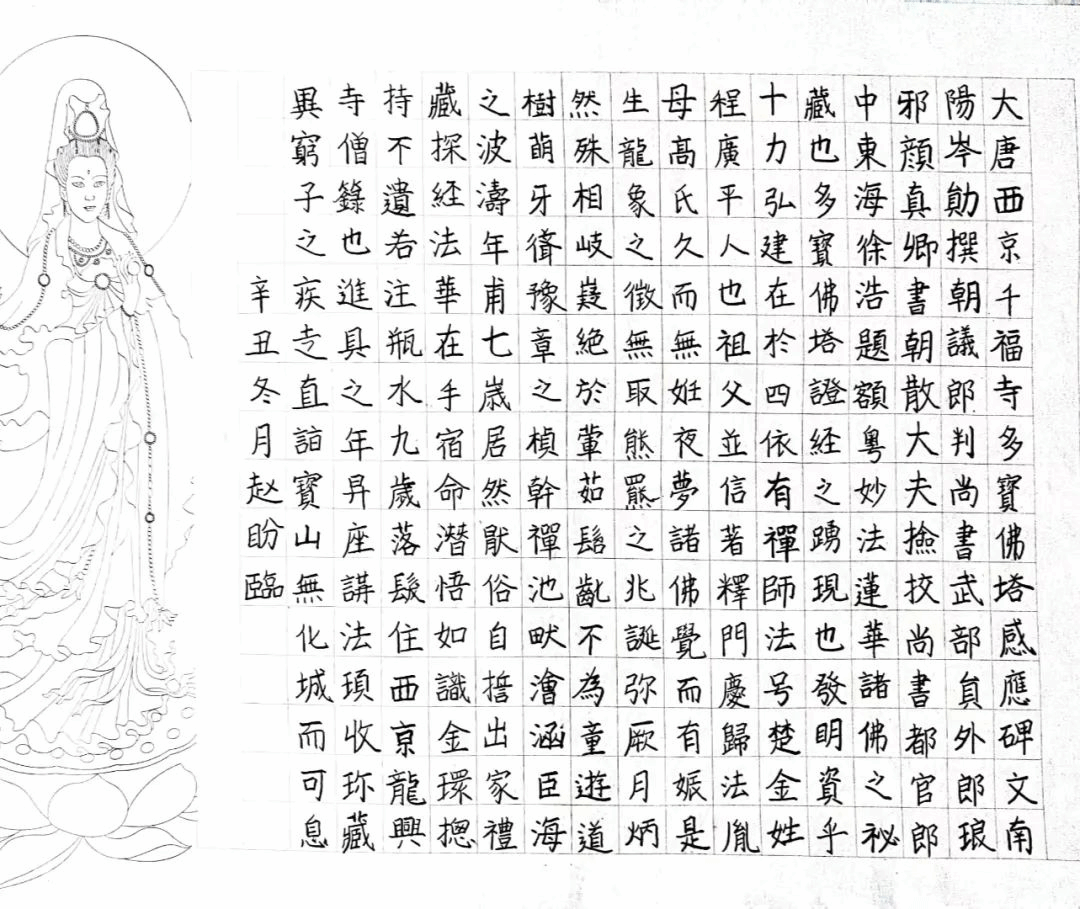 大唐西京千福寺多寶佛塔感應碑文南
陽岑勛撰朝議郎判尚書武部員外郎琅
邪顏真卿書朝散大夫撿挍尚書都官郎
中東海徐浩題額粤妙法蓮華諸佛之祕
藏也多寶佛塔證経之踴現也發明資乎
十力弘建在於四依有禪師法号楚金姓
程廣平人也祖父並信著釋門慶歸法胤
母高氏久而無姙夜夢諸佛覺而有娠是
生龍象之徵無取熊羆之兆誕弥厥月炳
然殊相岐嶷絕於葷茹髫齔不為童遊道
樹萌牙聳豫章之楨幹禪池畎澮涵臣海
之波濤年甫七歲居然猒俗自誓出家禮
藏探経法華在手宿命潛悟如識金環揔
持不遺若注瓶水九歲落髮住西京龍興
寺僧籙也進具之年昇座講法頊收珎藏
異窮子之疾走直詣寶山無化城而可息
辛丑冬月赵盼臨